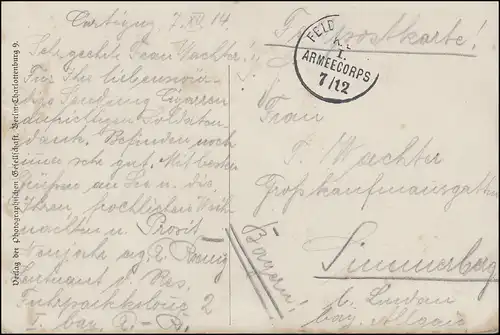 Cartigny, 7.XII.14.
Sehr geehrte Frau Wachter!
Für Ihre liebenswür-
dige Spendung Cigarren
aufrichtigen Soldaten-
dank. Befinden noch
immer sehr gut. Mit besten
Grüßen an Sie u. die
Ihren, fröhlichen Weih-
nachten u. Prosit
Neujahr
Leutnant d. Res.
Fuhrparkkolonne 2
I. bay.
Verlag der Photographischen Gesellschaft, Berlin-Charlottenburg 9.
Feldpostkarte!
FELD
K.
I.
ARMEECORPS
7/12
Frau
F. Wachter
Großkaufmannsgattin
Simmerberg
b. Lindau
bay. Allgäu
Bayern!